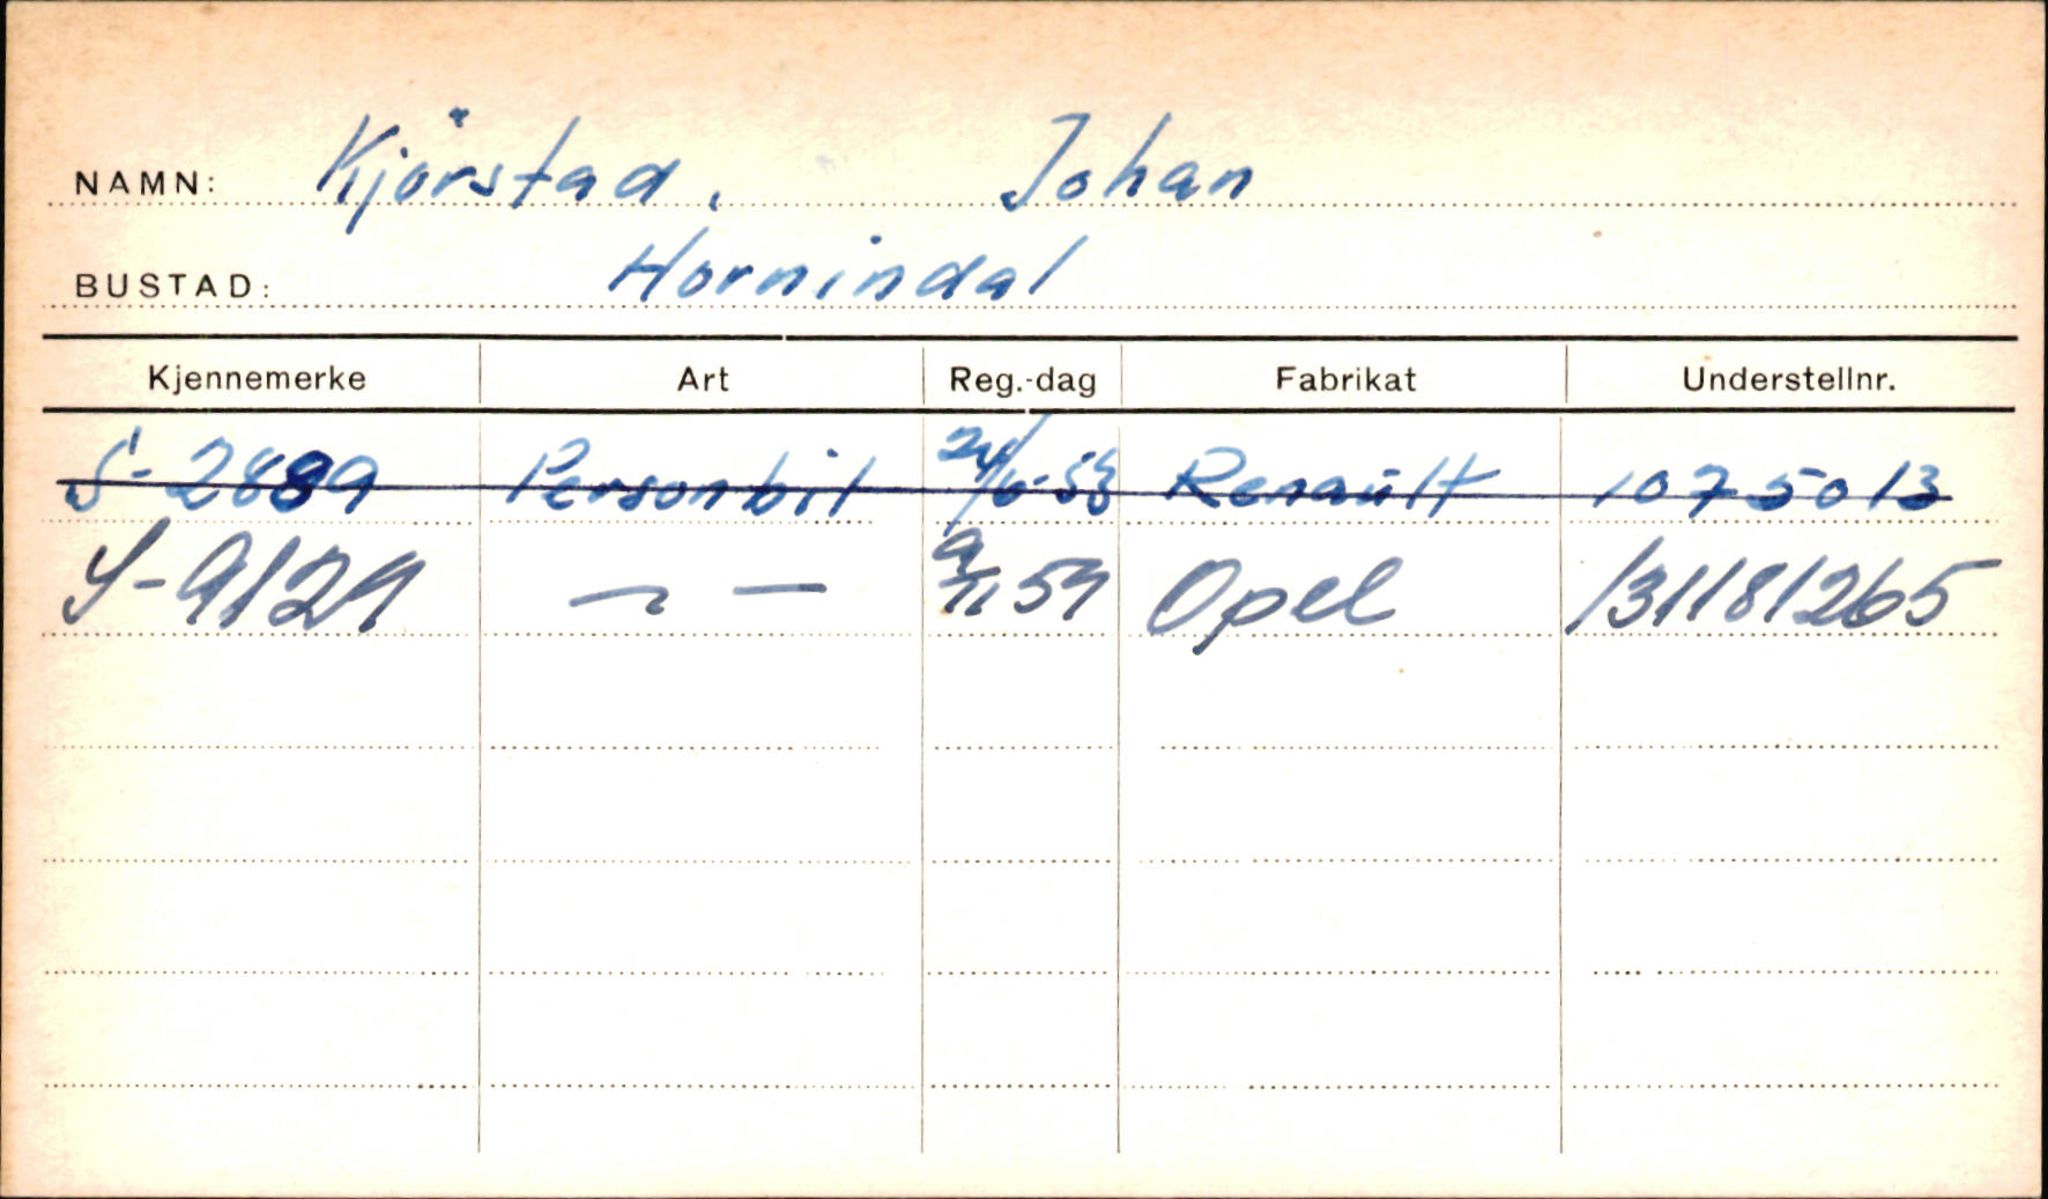 NAMN: Kjörstad, Johan
BUSTAD: Hornindal
Kjennemerke Art Reg.-dag Fabrikat Understellnr.
S-2889 Personbil 24/6-53 Renault 1075013
S-9129 —"— 9/11 59 Opel 131181265